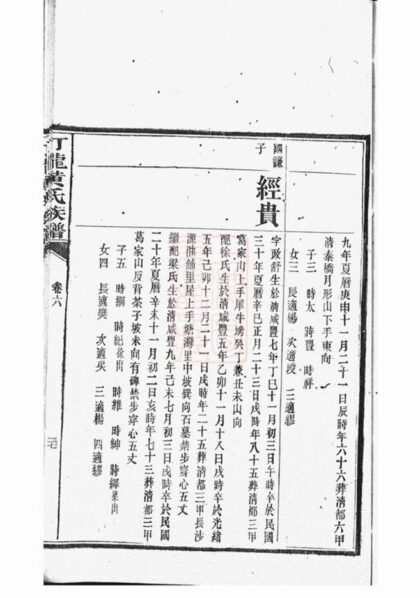 九年夏曆庚申十一月二十一日辰時年六十六葬清都六甲
清泰橋月形山下手東向
子三　時太　時豐　時祥
女三　長適楊　次適段　三適繆
國謙子　經貴
字政舒生於清咸豐七年丁巳十一月初三日午時卒於民國
三十年夏曆辛巳正月二十三日戌時年八十五葬清都三甲
葛家山上手犀牛塝癸丁兼丑未山向
配徐氏生於清咸豐五年乙卯十一月十八日戌時卒於光緒
五年己卯十二月二十一日戌時年二十五葬清都三甲長沙
源油舖里屋上手塘灣里中坡巽向石墓禁步穿心五丈
繼配梁氏生於清咸豐九年己未七月初三日戌時卒於民國
二十年夏曆辛未十一月初二日亥時年七十三葬清都三甲
葛家山反背茶子坡未向有碑禁步穿心五丈
子五　時綱　時紀徐出　時維　時紳　時繹梁出
女四　長適樊　次適吳　三適楊　四適繆
丁龍黃氏族譜　卷六